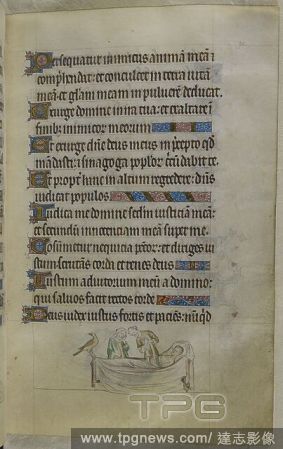 Persequatur inimicus animā meā ⁊
comp̄hendat: et conculcet in terra uitā
meā: et gl̄am meam in puluerē deducat.
Exurge domine in ira tua: et exaltare ī
finib; inimicor̄ meorum
Et exurge dn̄e deus meus in p̄cepto qd̄
mandasti: ⁊ sinagoga popl̄or̄ cir̄cūdabit te.
Et propt̄ hanc in altum regredere: dn̄s
iudicat populos
Iudica me domine scd̄m iusticiā meā:
et secundū innocenciam meā super me
Cōsumetur nequicia pctōr̄: et diriges iu
stum scrutās corda et renes deus
Iustum adiutorium meū a domino:
qui saluos facit rectos corde
Deus iudex iustus fortis et paciēs: nūqd̄
TPG
www.tpgnews.com/ 達志影像